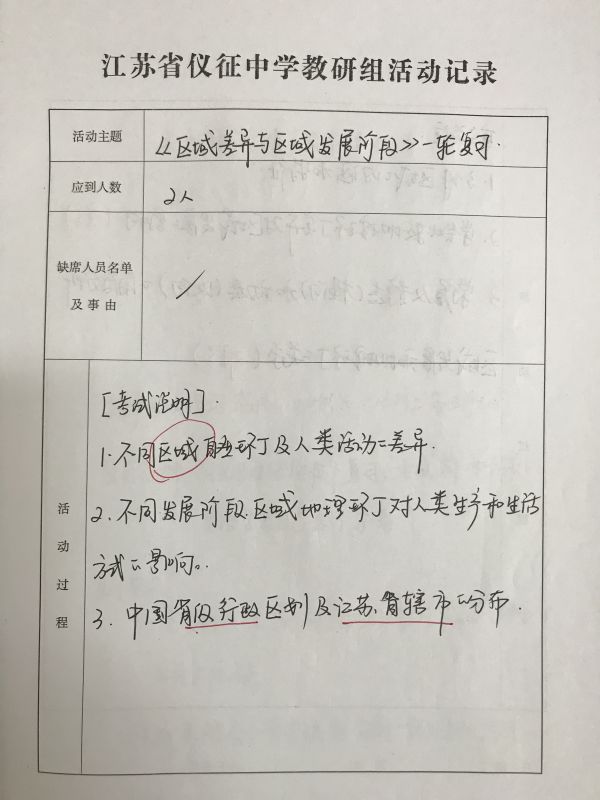 江苏省仪征中学教研组活动记录
活动主题
《区域差异与区域发展阶段》一轮复习.
应到人数
2人
缺席人员名单
及事由
/
活动过程
[考试说明].
1.不同区域自然环丁及人类活动二差异.
2.不同发展阶段区域地理环丁对人类生产和生活
方式二影响。
3.中国省级行政区划及江苏省辖市二分布.